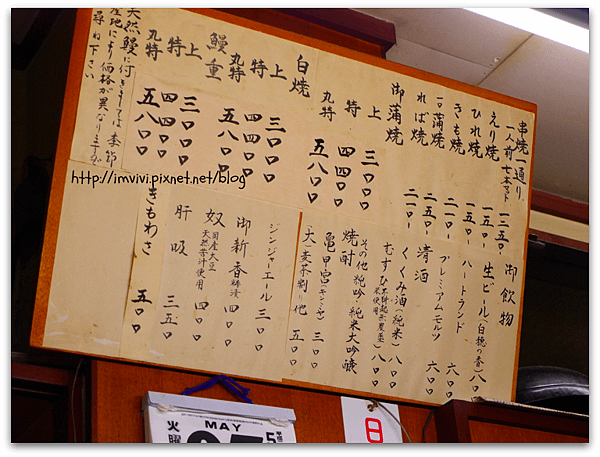 串焼一通り
一人前 七本セット 一三五〇
えり焼 一五〇
ひれ焼 一五〇
きも焼 二一〇
一口蒲焼 二五〇
れば焼 二一〇
御蒲焼
上 三〇〇〇
特 四四〇〇
丸特 五八〇〇
白焼
上 三〇〇〇
特 四四〇〇
丸特 五八〇〇
鰻重
上 三〇〇〇
特 四四〇〇
丸特 五八〇〇
天然鰻に付きましては季節
産地により価格が異なりますので
お尋ね下さい
御飲物
生ビール(白穂の香) 八〇〇
ハートランド 六〇〇
プレミアムモルツ 六〇〇
清酒
くくみ酒(純米) 八〇〇
むすひ 八〇〇
その他 純吟・純米大吟醸
焼酎
亀甲宮(キンミヤ) 三〇〇
大麦茶割り他 五〇〇
ジンジャーエール 三〇〇
御新香 四〇〇
奴 国産大豆 天然苦汁使用 四〇〇
肝吸 三五〇
きもわさ 五〇〇
http://imvivi.pixnet.net/blog
MAY
火
曜
5
日